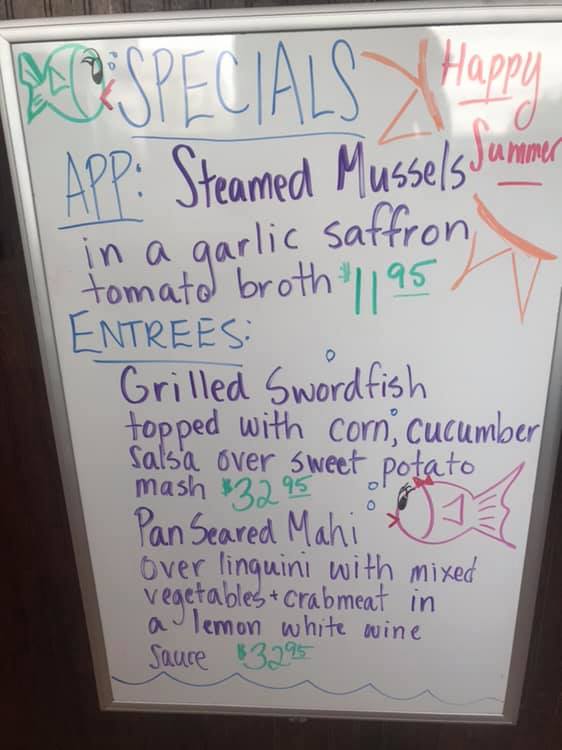 SPECIALS
Happy
Summer
APP: Steamed Mussels
in a garlic saffron
tomato broth $11 95
ENTREES:
Grilled Swordfish
topped with corn, cucumber
salsa over sweet potato
mash $32 95
Pan Seared Mahi
over linguini with mixed
vegetables + crabmeat in
a lemon white wine
sauce $32 95